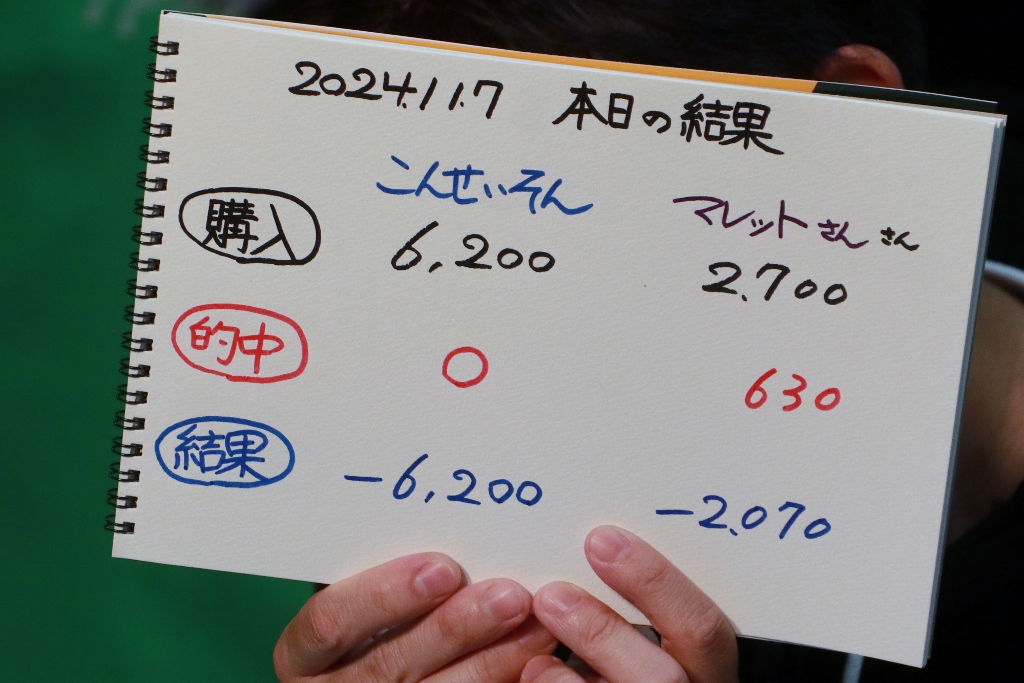 2024.11.7 本日の結果
こんせいそん マレットさん さん
購入 6,200 2.700
的中 0 630
結果 -6,200 -2.070